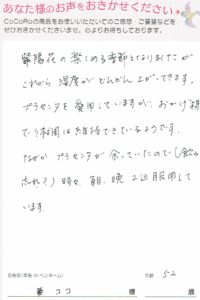 あなた様のお声をおきかせください
CoCoRoの商品をお使いいただいてのご感想・ご要望などを
ぜひおきかせくださいませ。心よりお待ちしております。
紫陽花の楽しめる季節となりましたが
これから湿度がどんどん上がってきます。
プラセンタを愛用していますが、おかげ様
で1週間は維持できているようです。
なぜか プラセンタが余っていたので(飲み
忘れ?) 時々、朝、晩 2回服用して
います。
お名前(本名 or ペンネーム) 年齢 52
ココ 様 歳